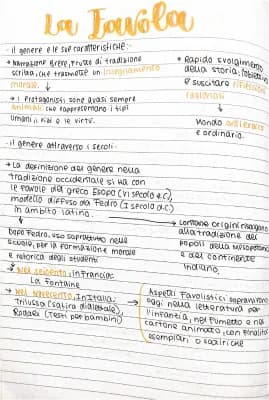 La Favola
· il genere e le sue caratteristiche:·
→ Narrazione Breve, Frutto di tradizione
scritta, che trasmette un insegnamento
morale.
→ i Protagonisti sono quasi sempre
animali che rappresentano i tipi
umani, i vizi e le virtù.
→ Rapido svolgimento
della storia, l'obiettivo
è suscitare riflessioni
razionali
Mondo antieroico
e ordinario.
· il genere attraverso i secoli·
→ La definizione del genere nella
tradizione occidentale si ha con
le favole del greco Esopo (VI secolo a.C),
modello diffuso da Fedro (I secolo d.C)
in ambito latino.
→ Lontane origini risalgono
alla tradizione dei
popoli della Mesopotamia
e del continente
indiano.
Dopo Fedro, uso soprattutto nelle
scuole, per la formazione morale
e retorica degli studenti
→ Nel seicento, in Francia:
La Fontaine
→ Nel novecento, in Italia:
Trilussa (satira dialettale),
Rodari (Testi per bambini)
Aspetti Favolistici sopravvivono
oggi nella letteratura per
l'infanzia, nel fumetto e nel
cartone animato, con finalità
esemplari o satiriche